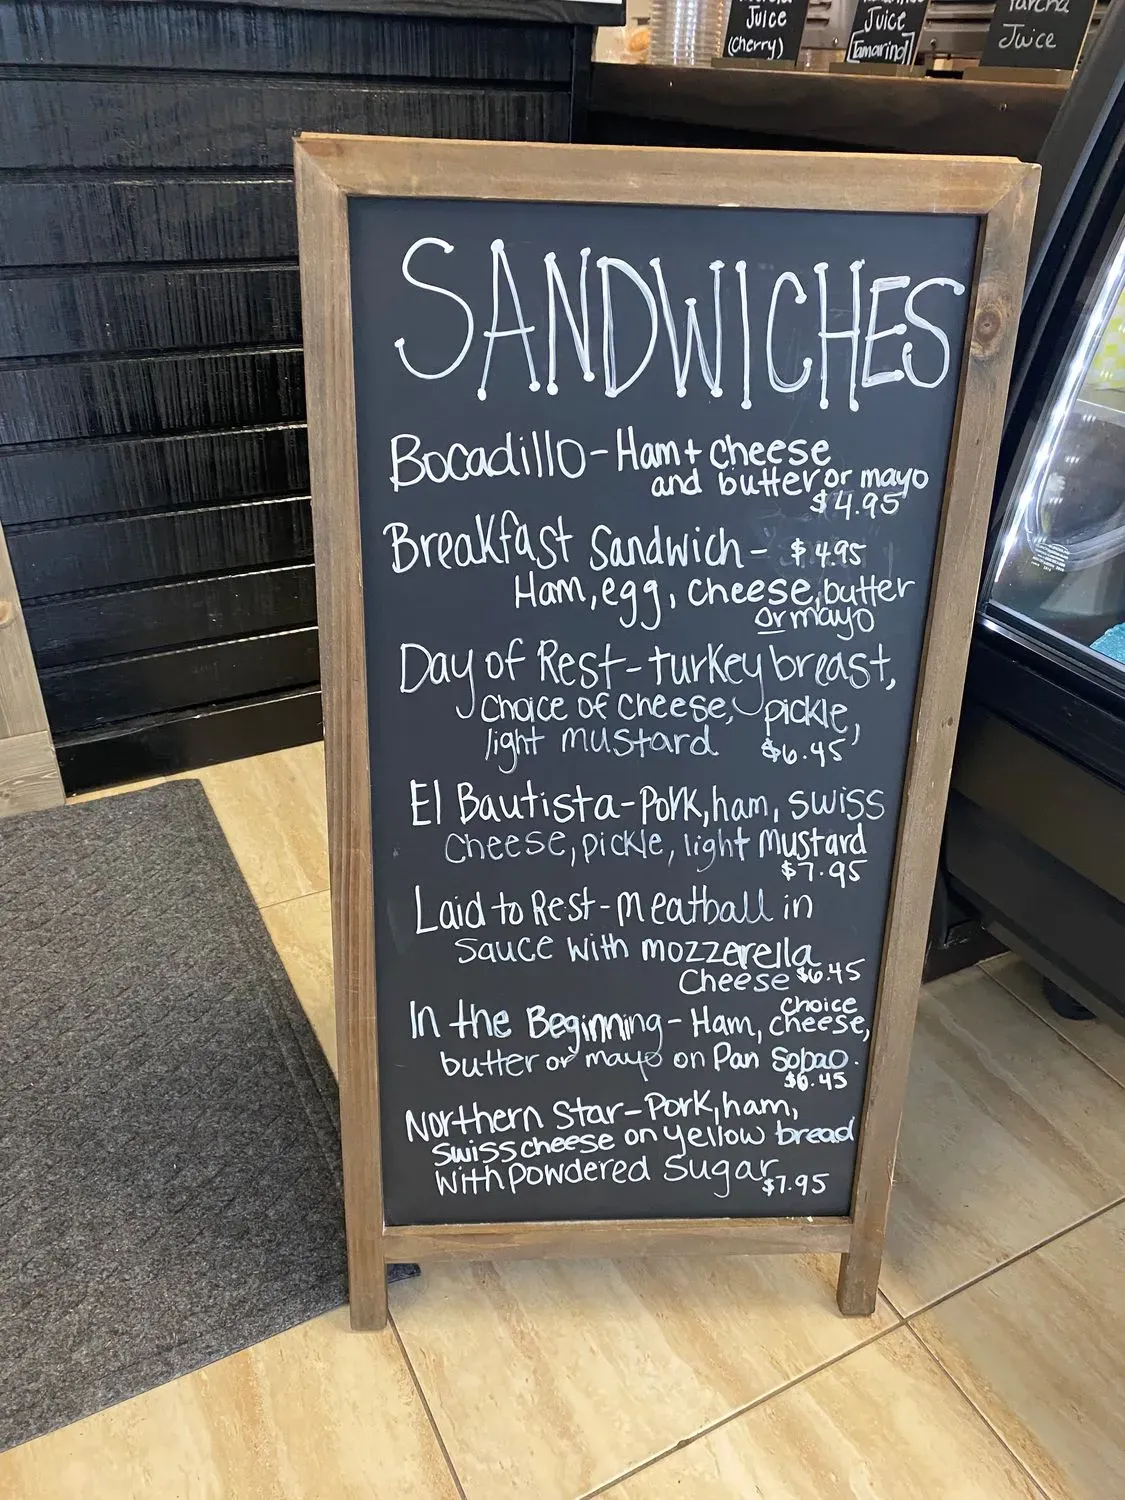 Juice
(Cherry)
Juice
[Tamarind]
Parcha
Juice
SANDWICHES
Bocadillo - Ham + cheese
and butter or mayo
$4.95
Breakfast Sandwich - $4.95
Ham, egg, cheese, butter
or mayo
Day of Rest - turkey breast,
choice of cheese, pickle,
light mustard $6.45
El Bautista - Pork, ham, swiss
cheese, pickle, light Mustard
$7.95
Laid to Rest - Meatball in
sauce with mozzerella
Cheese $6.45
In the Beginning - Ham, choice cheese,
butter or mayo on Pan Sobao.
$6.45
Northern Star - Pork, ham,
swiss cheese on yellow bread
with powdered sugar $7.95